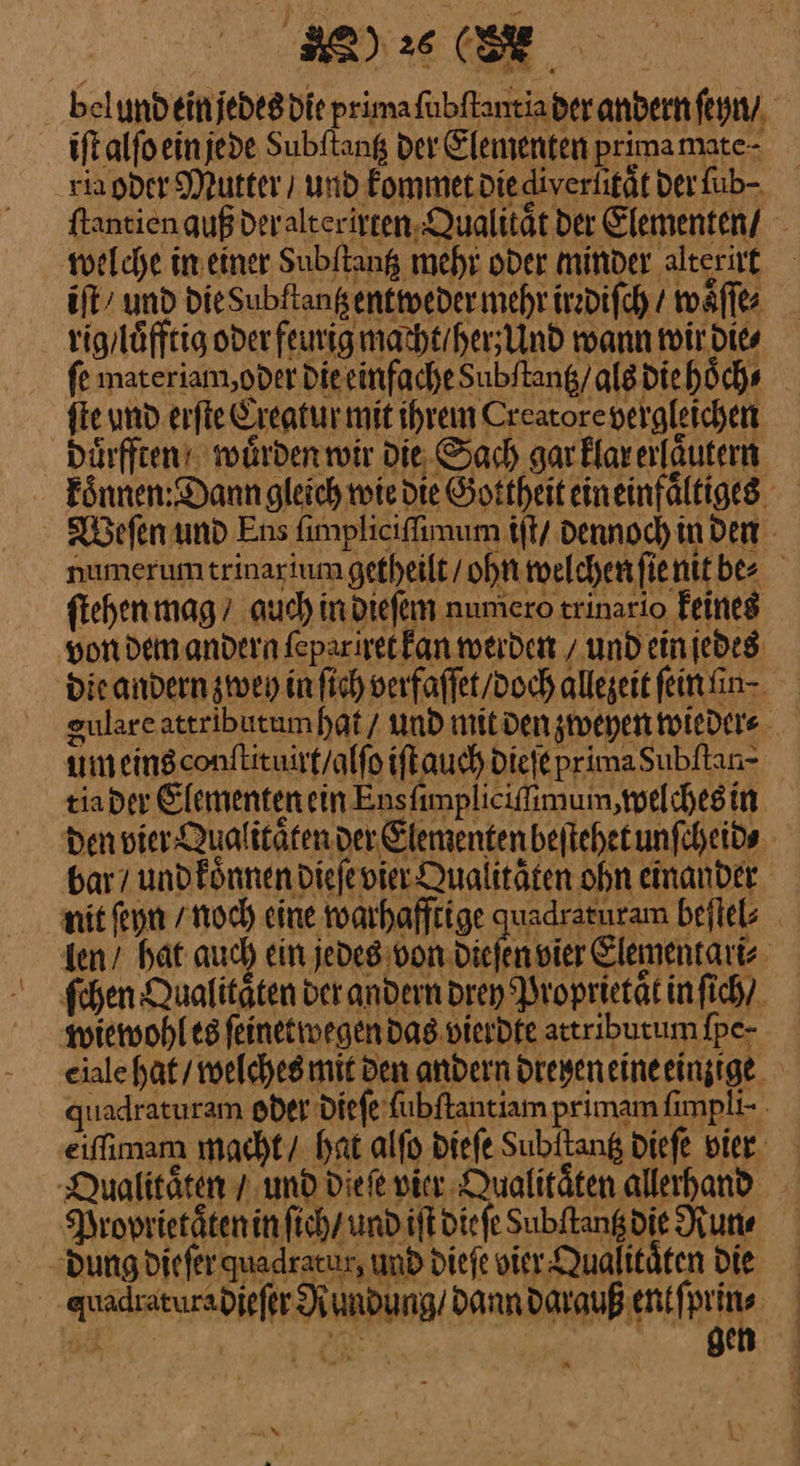 ) 26 (
bel und ein jedes die prima ſubſtantia der andern ſeyn/
iſt alſo ein jede Subſtantz der Elementen prima mate-
ria oder Mutter / und kommet die diverſität der ſub-
ſtantien auß der alterirten Qualität der Elementen/
welche in einer Subſtantz mehr oder minder alterirt
iſt / und die Subſtantz entweder mehr irꝛdiſch / wäſſe-
rig/lüfftig oder feurig macht/her; Und wann wir die-
ſe materiam, oder die einfache Subſtantz/ als die höch-
ſte und erſte Creatur mit ihrem Creatore vergleichen
dürfften / würden wir die Sach gar klar erläutern
können: Dann gleich wie die Gottheit ein einfältiges
Weſen und Ens ſimpliciſſimum iſt/ dennoch in den
numerum trinarium getheilt / ohn welchen ſie nit be-
ſtehen mag / auch in dieſem numero trinario keines
von dem andern ſepariret kan werden / und ein jedes
die andern zwey in ſich verfaſſet/doch allezeit ſein ſin-
gulare attributum hat / und mit den zweyen wieder-
um eins conſtituirt/alſo iſt auch dieſe prima Subſtan-
tia der Elementen ein Ens ſimpliciſſimum, welches in
den vier Qualitäten der Elementen beſtehet unſcheid-
bar / und können dieſe vier Qualitäten ohn einander
nit ſeyn / noch eine warhafftige quadraturam beſtel-
len / hat auch ein jedes von dieſen vier Elementari-
ſchen Qualitäten der andern drey Proprietät in ſich/
wiewohl es ſeinetwegen das vierdte attributum ſpe-
ciale hat / welches mit den andern dreyen eine einzige
quadraturam oder dieſe ſubſtantiam primam ſimpli-
ciſſimam macht / hat alſo dieſe Subſtantz dieſe vier
Qualitäten / und dieſe vier Qualitäten allerhand
Proprietäten in ſich/ und iſt dieſe Subſtantz die Run-
dung dieſer quadratur, und dieſe vier Qualitäten die
quadratura dieſer Rundung/ dann darauß entſprin-
gen